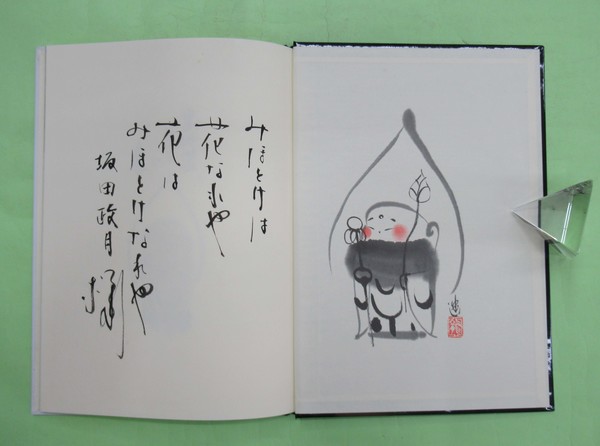 みほとけは
花なれや
花は
みほとけなれや
坂田政月様